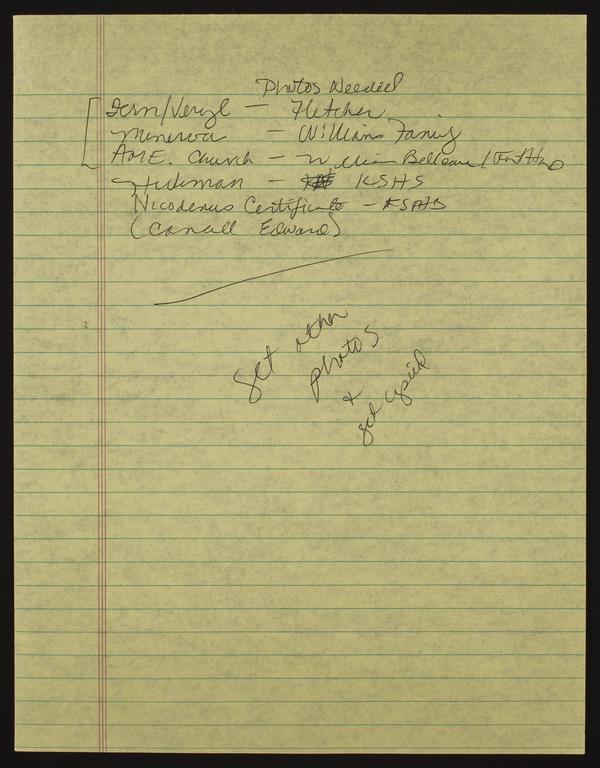 Photos Needed
Fern/Veryl — Fletcher
Minerva — Williams Family
A.M.E. Church — William Belleau /
Hickman — KSHS
Nicodemus Certificate — KSHS
( Edward)
get other
photos
&
get copied